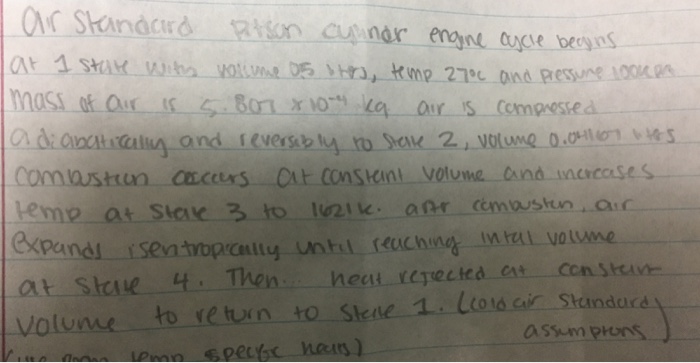 air standard piston cylindr engine cycle begins
at 1 state with volume 05 liters, temp 27°c and pressure 100KPa
mass of air is 5.807 x10⁻⁴ kg air is compressed
adiabatically and reversibly to state 2, volume
combustion occurs at constant volume and increases
temp at state 3 to 1621k. after combustion, air
expands isentropically until reaching intial volume
at state 4. Then.. heat rejected at constant
volume to return to state 1. (cold air standard
assumptions)
temp specific heats)